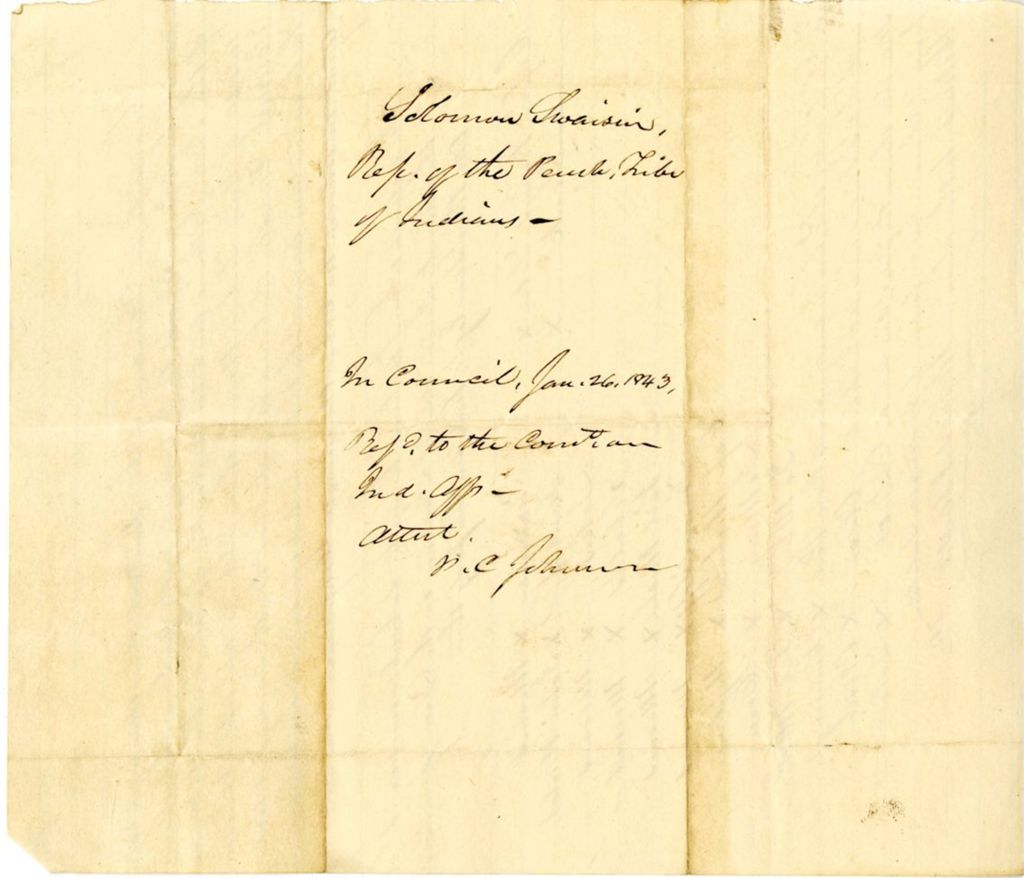 Solomon Swaisin,
Rep. of the Penob. Tribe
of Indians –
In Council, Jan. 26, 1843,
Refd. to the Comtee on
Ind. Affs –
Attest.
P. C Johnson